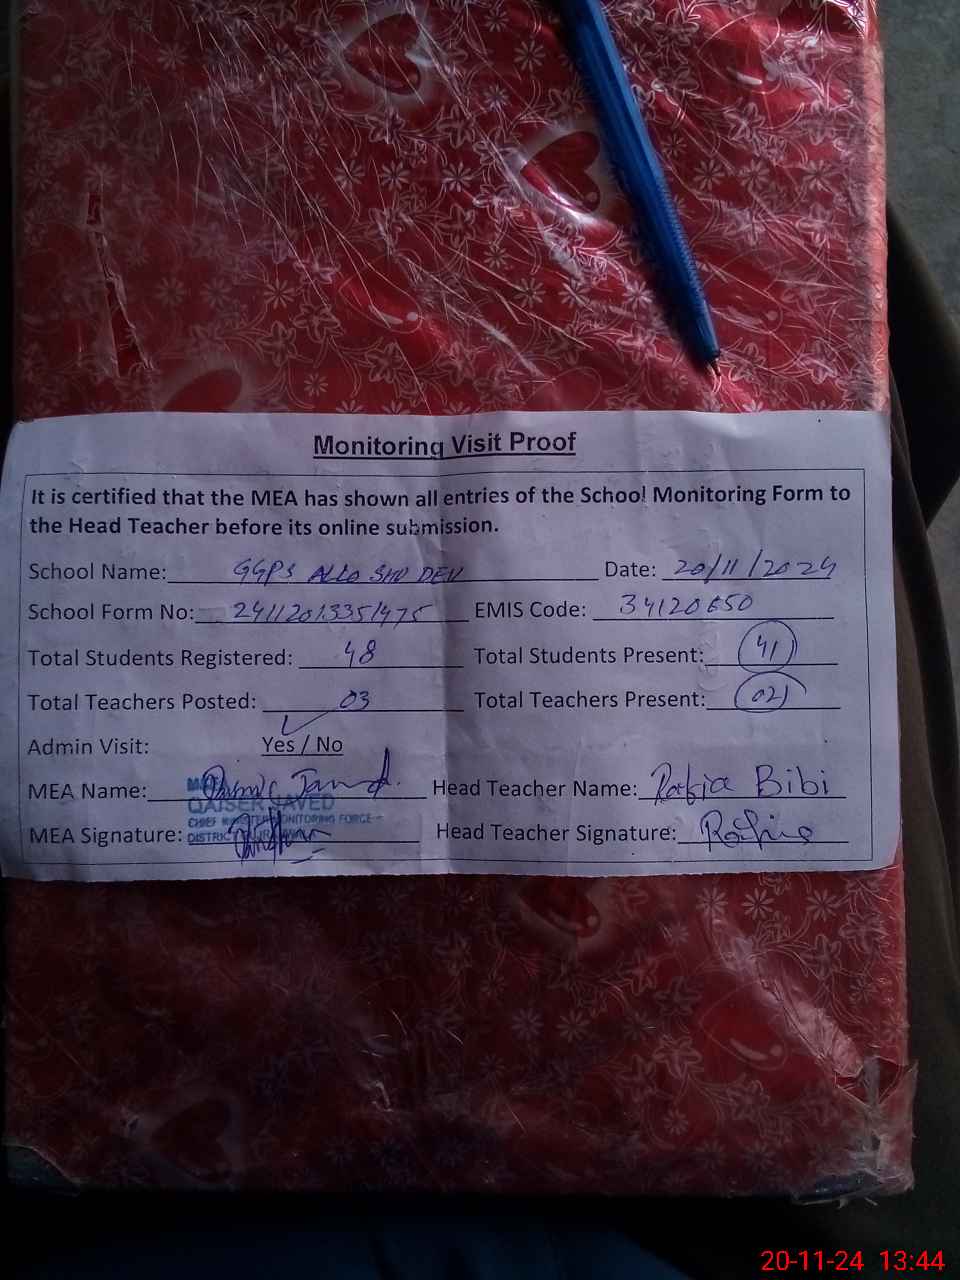 Monitoring Visit Proof
It is certified that the MEA has shown all entries of the School Monitoring Form to
the Head Teacher before its online submission.
School Name: GGPS ALLO SHU DEV Date: 20/11/2024
School Form No: 24112013351475 EMIS Code: 34120650
Total Students Registered: 48 Total Students Present: 41
Total Teachers Posted: 03 Total Teachers Present: 02
Admin Visit: Yes / No
MEA Name: Head Teacher Name: Rafia Bibi
QAISER JAVED
CHIEF MINISTER MONITORING FORCE
MEA Signature: DISTRICT Head Teacher Signature:
20-11-24 13:44